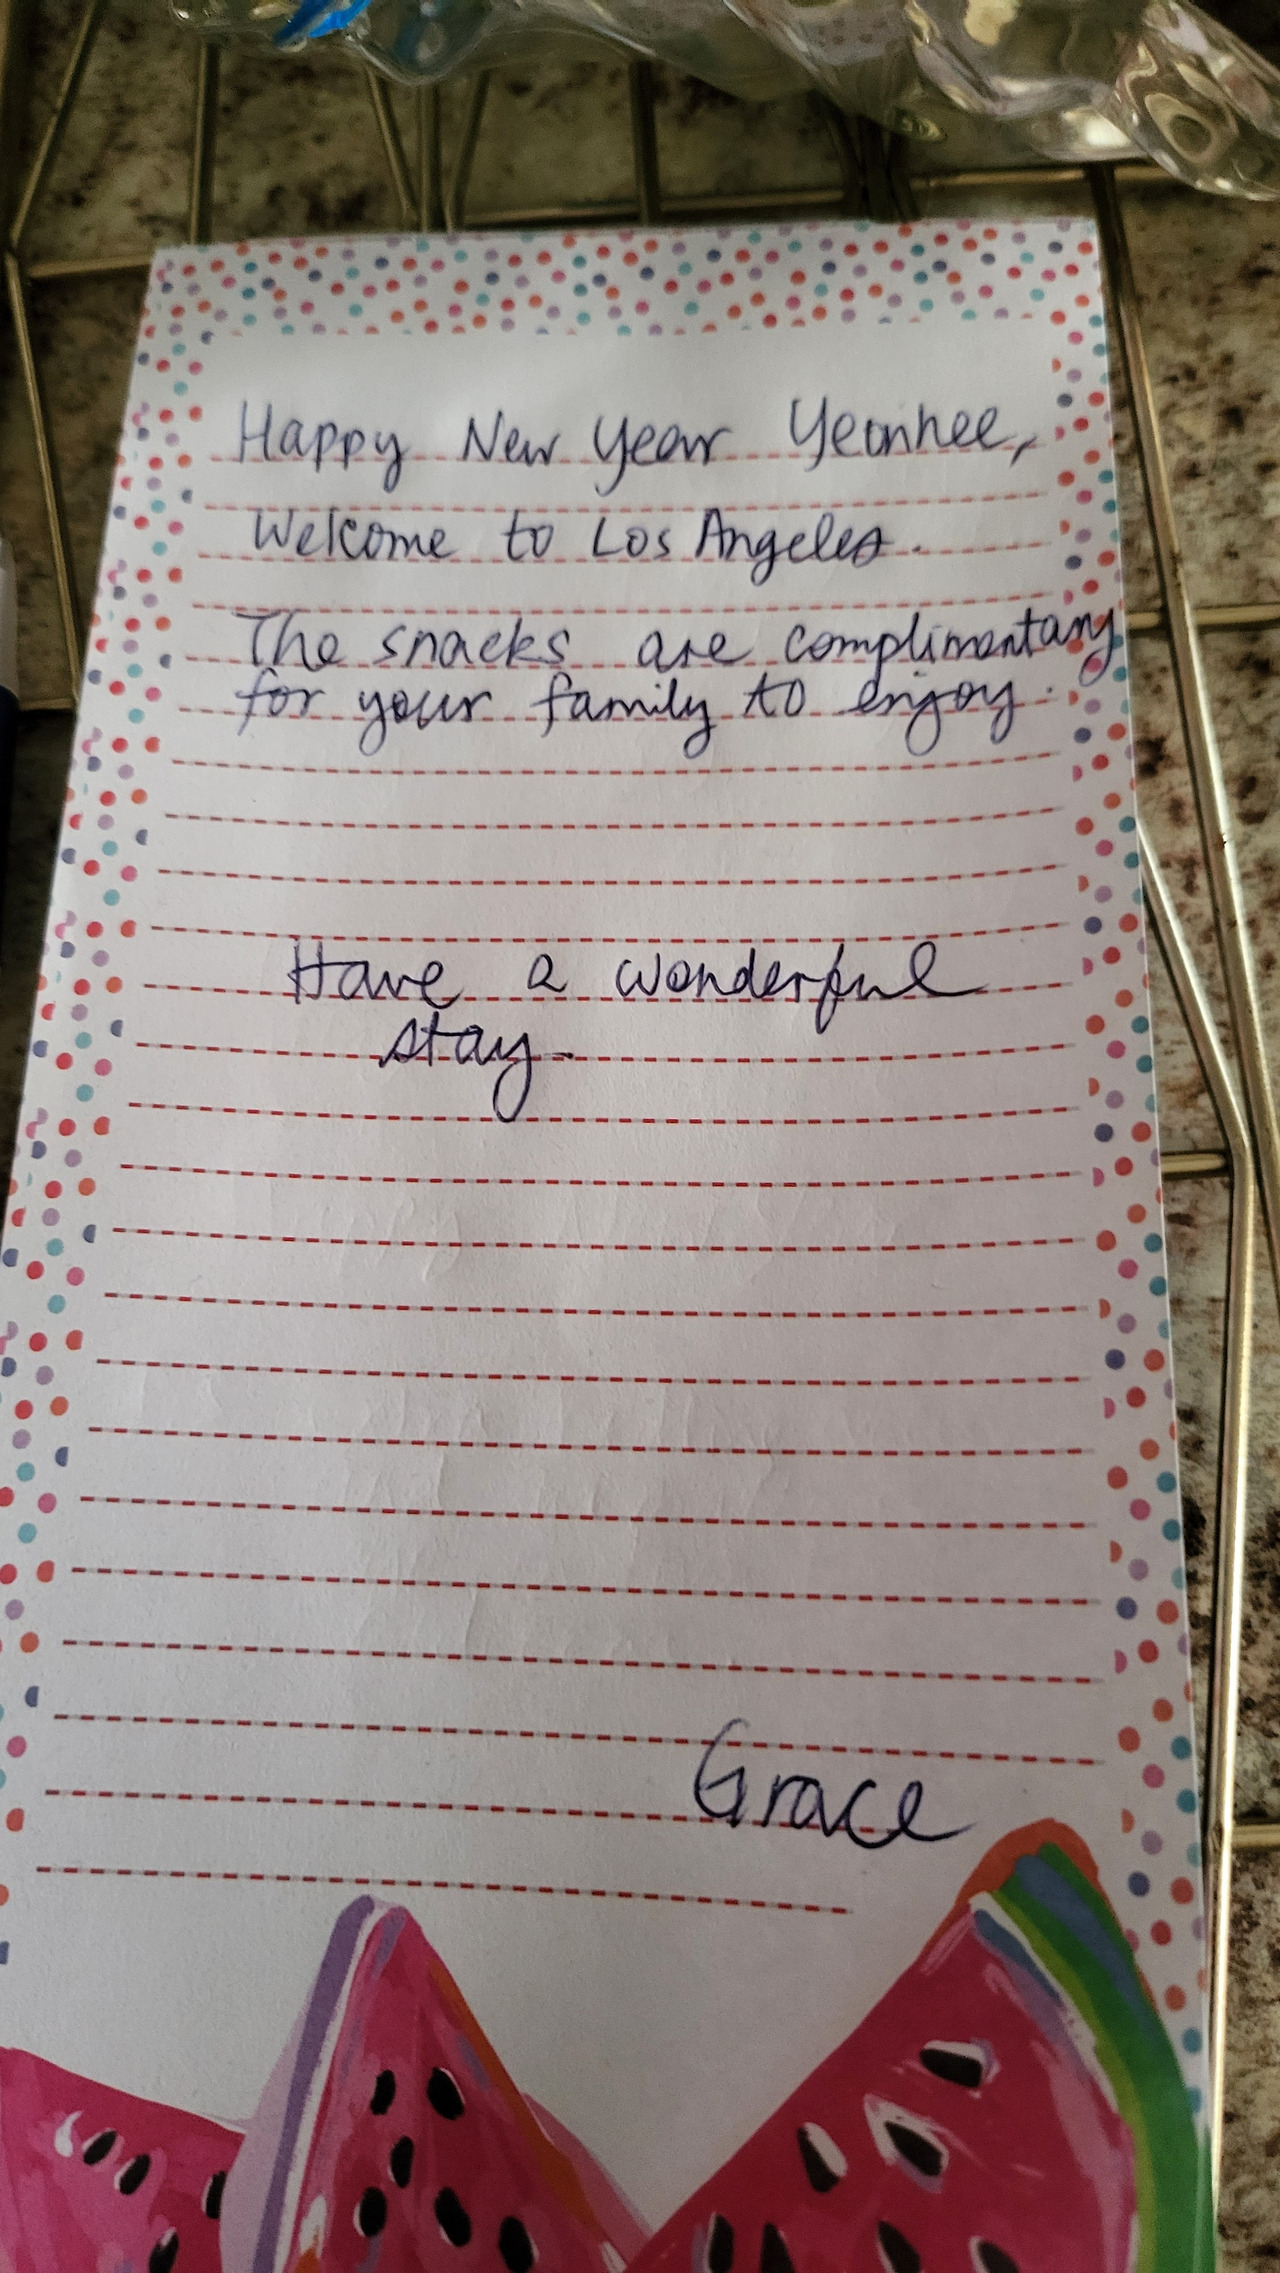 Happy New Year Yeonhee,
Welcome to Los Angeles.
The snacks are complimentary
for your family to enjoy.
Have a wonderful
stay.
Grace